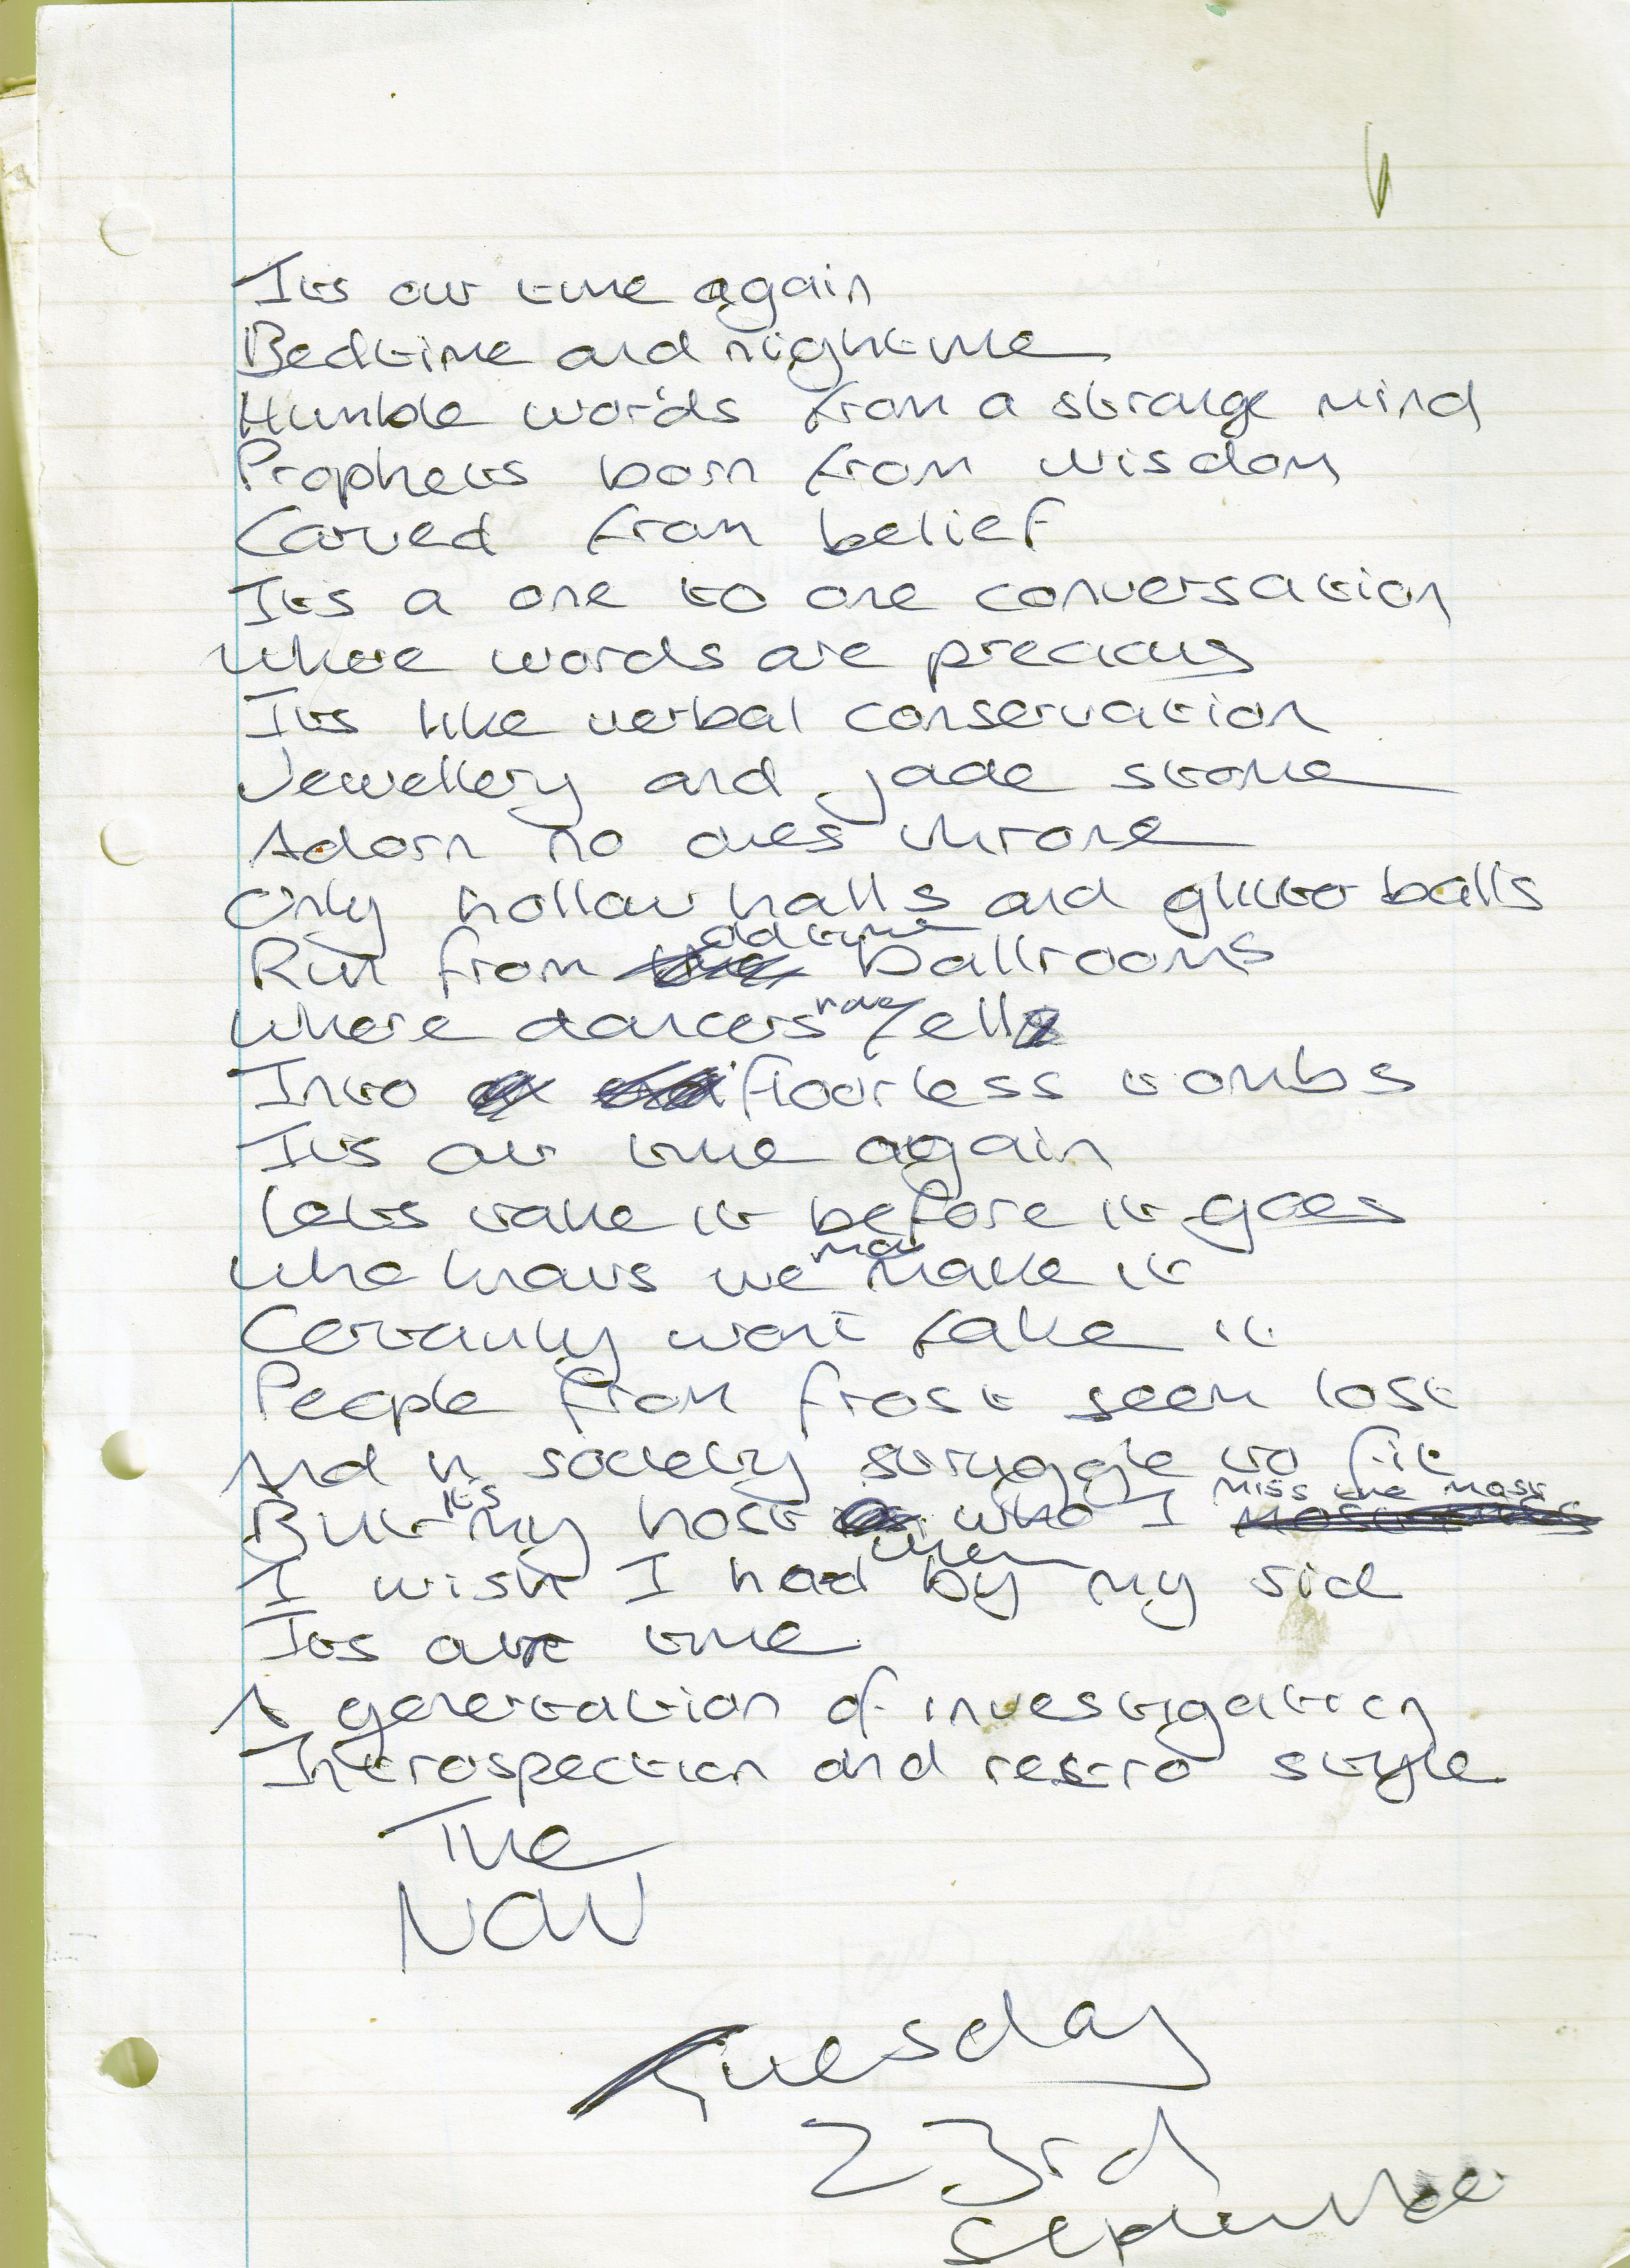 Its our time again
Bedtime and nightime
Humble words from a strange mind
Prophets born from wisdom
Carved from belief
Its a one to one conversation
Where words are precious
Its like verbal conservation
Jewellery and jade stone
Adorn no ones throne
Only hollow halls and glitter balls
Run from old time ballrooms
Where dancers have fell
Into floorless tombs
Its our time again
Lets take it before it goes
Who knows we may make it
Certainly wont fake it
People from frost seem lost
And in society struggle to fit
But its my host who I miss the most
I wish I had them by my side
Its our time
A generation of investigation
Introspection and restro style
The
Now
Tuesday
23rd
September